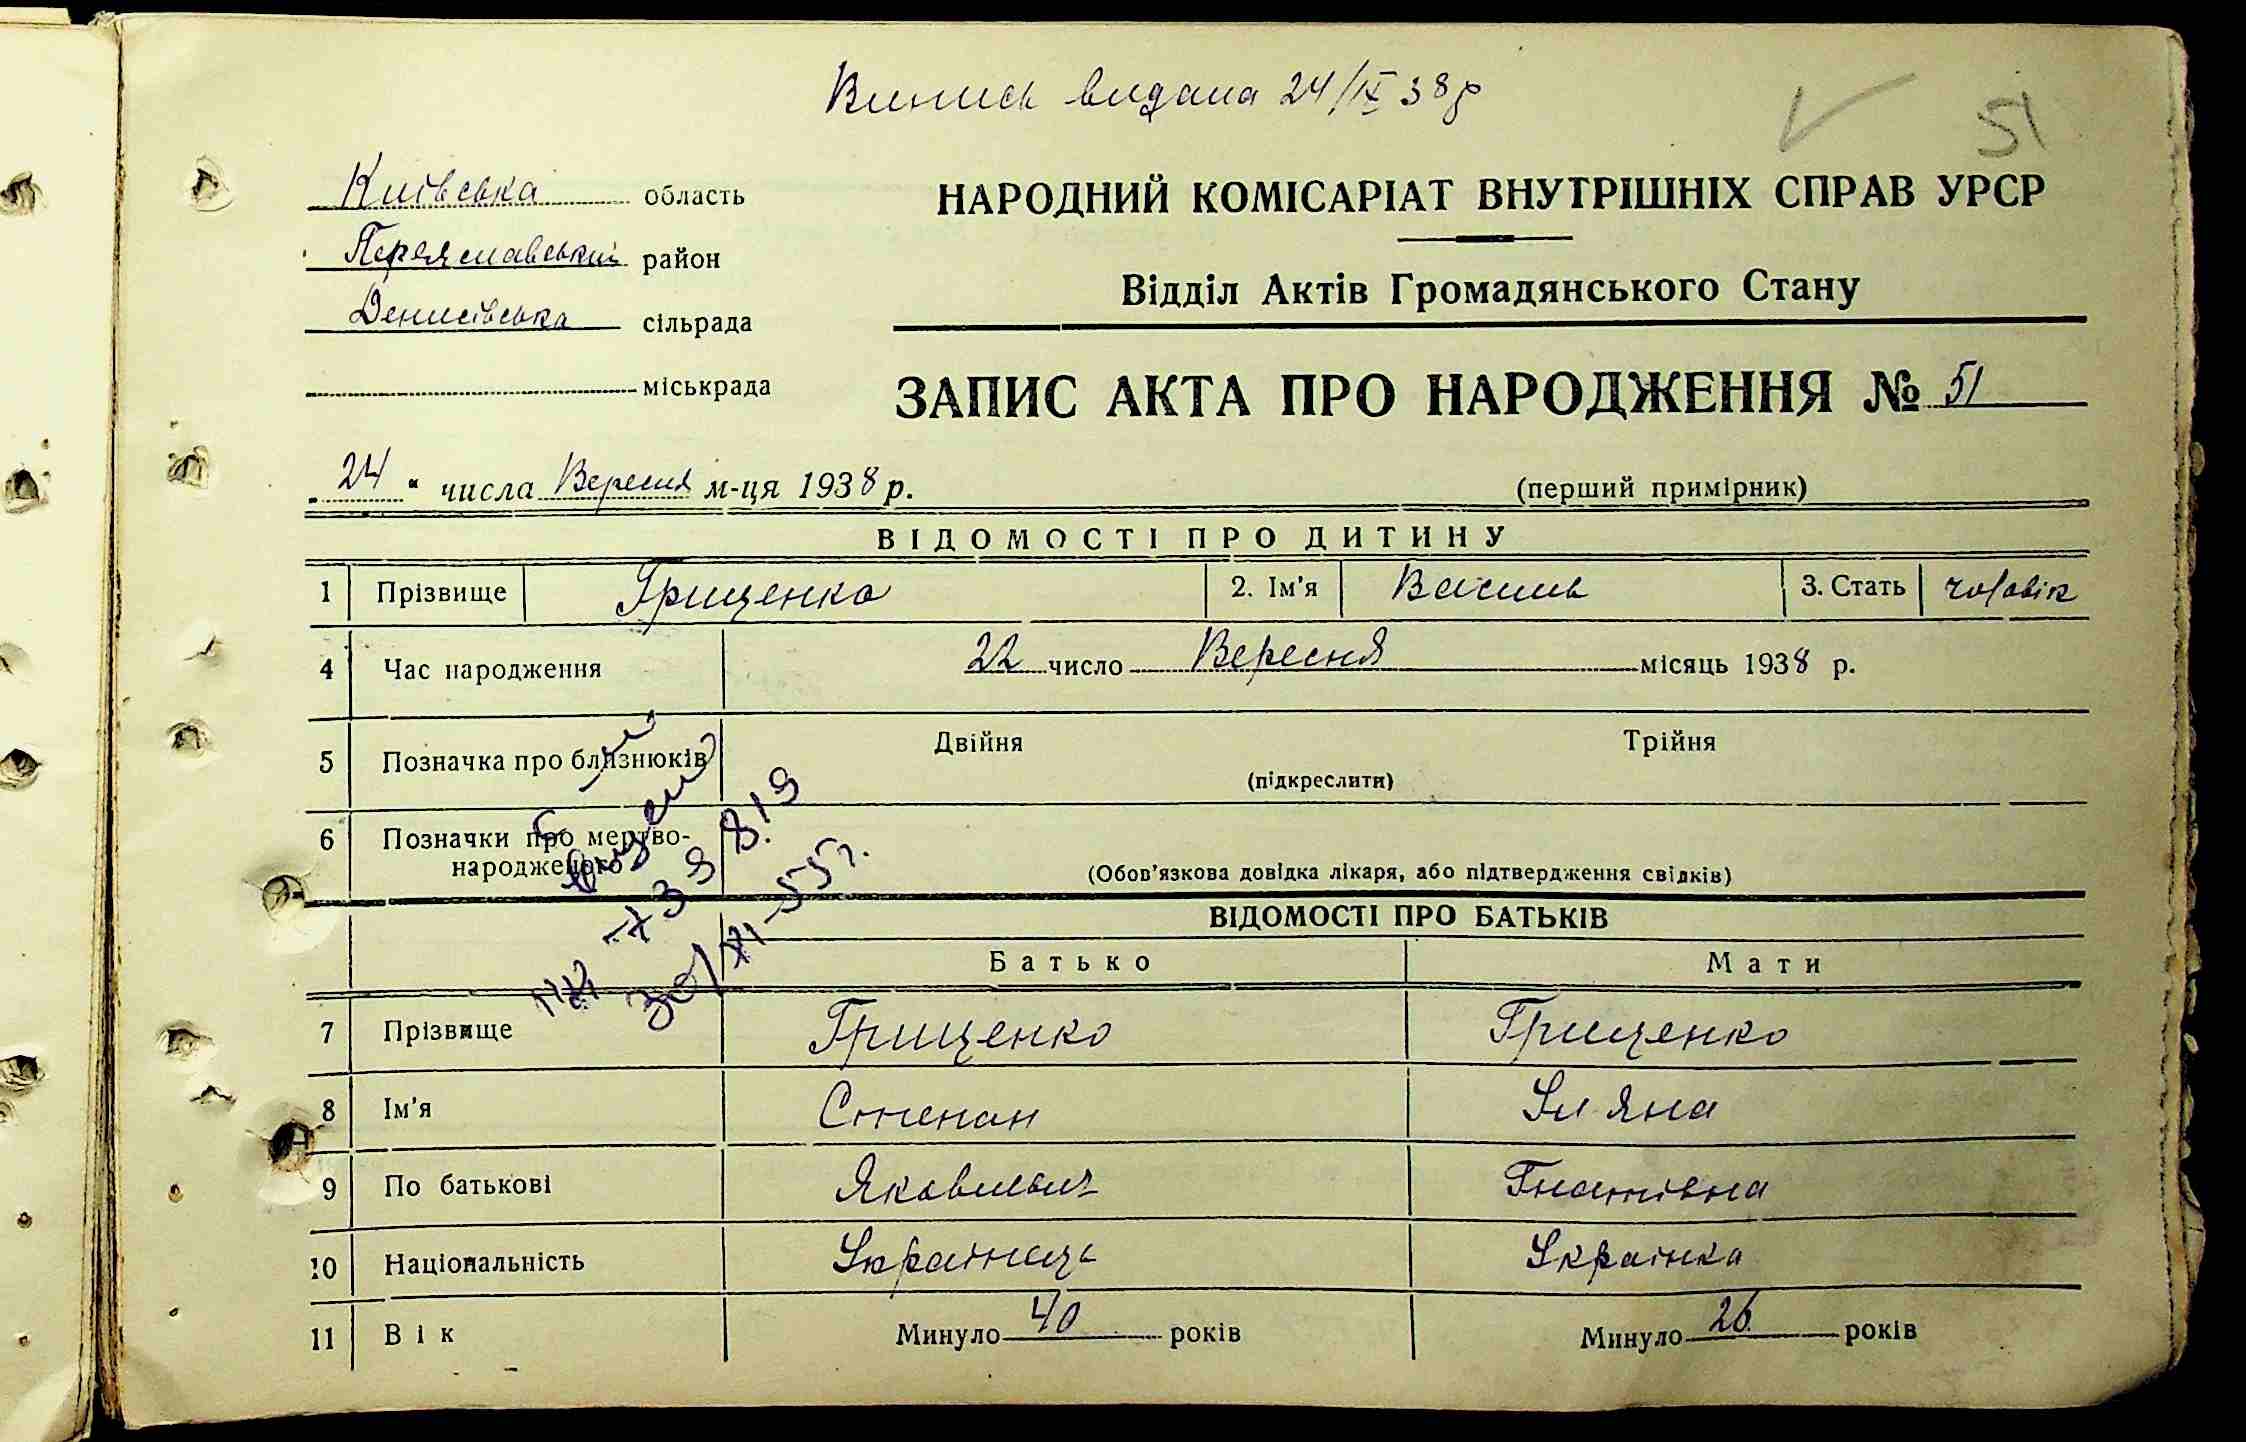 Випись видана 24/IX 38 р
51
Київська область
НАРОДНИЙ КОМІСАРІАТ ВНУТРІШНІХ СПРАВ УРСР
Переяславський район
Відділ Актів Громадянського Стану
Денисівська сільрада
міськрада
ЗАПИС АКТА ПРО НАРОДЖЕННЯ № 51
„24“ числа Вересня м-ця 1938 р.
(перший примірник)
ВІДОМОСТІ ПРО ДИТИНУ
1 Прізвище Грищенко 2. Ім'я Василь 3. Стать чоловік
4 Час народження 22 число Вересня місяць 1938 р.
5 Позначка про близнюків Двійня Трійня
(підкреслити)
6 Позначки про мертво-
народженого
(Обов'язкова довідка лікаря, або підтвердження свідків)
30/XI-55 г.
ВІДОМОСТІ ПРО БАТЬКІВ
Батько Мати
7 Прізвище Грищенко Грищенко
8 Ім'я Степан Уляна
9 По батькові Яковлевич Гнатівна
10 Національність Українець Українка
11 Вік Минуло 40 років Минуло 26 років